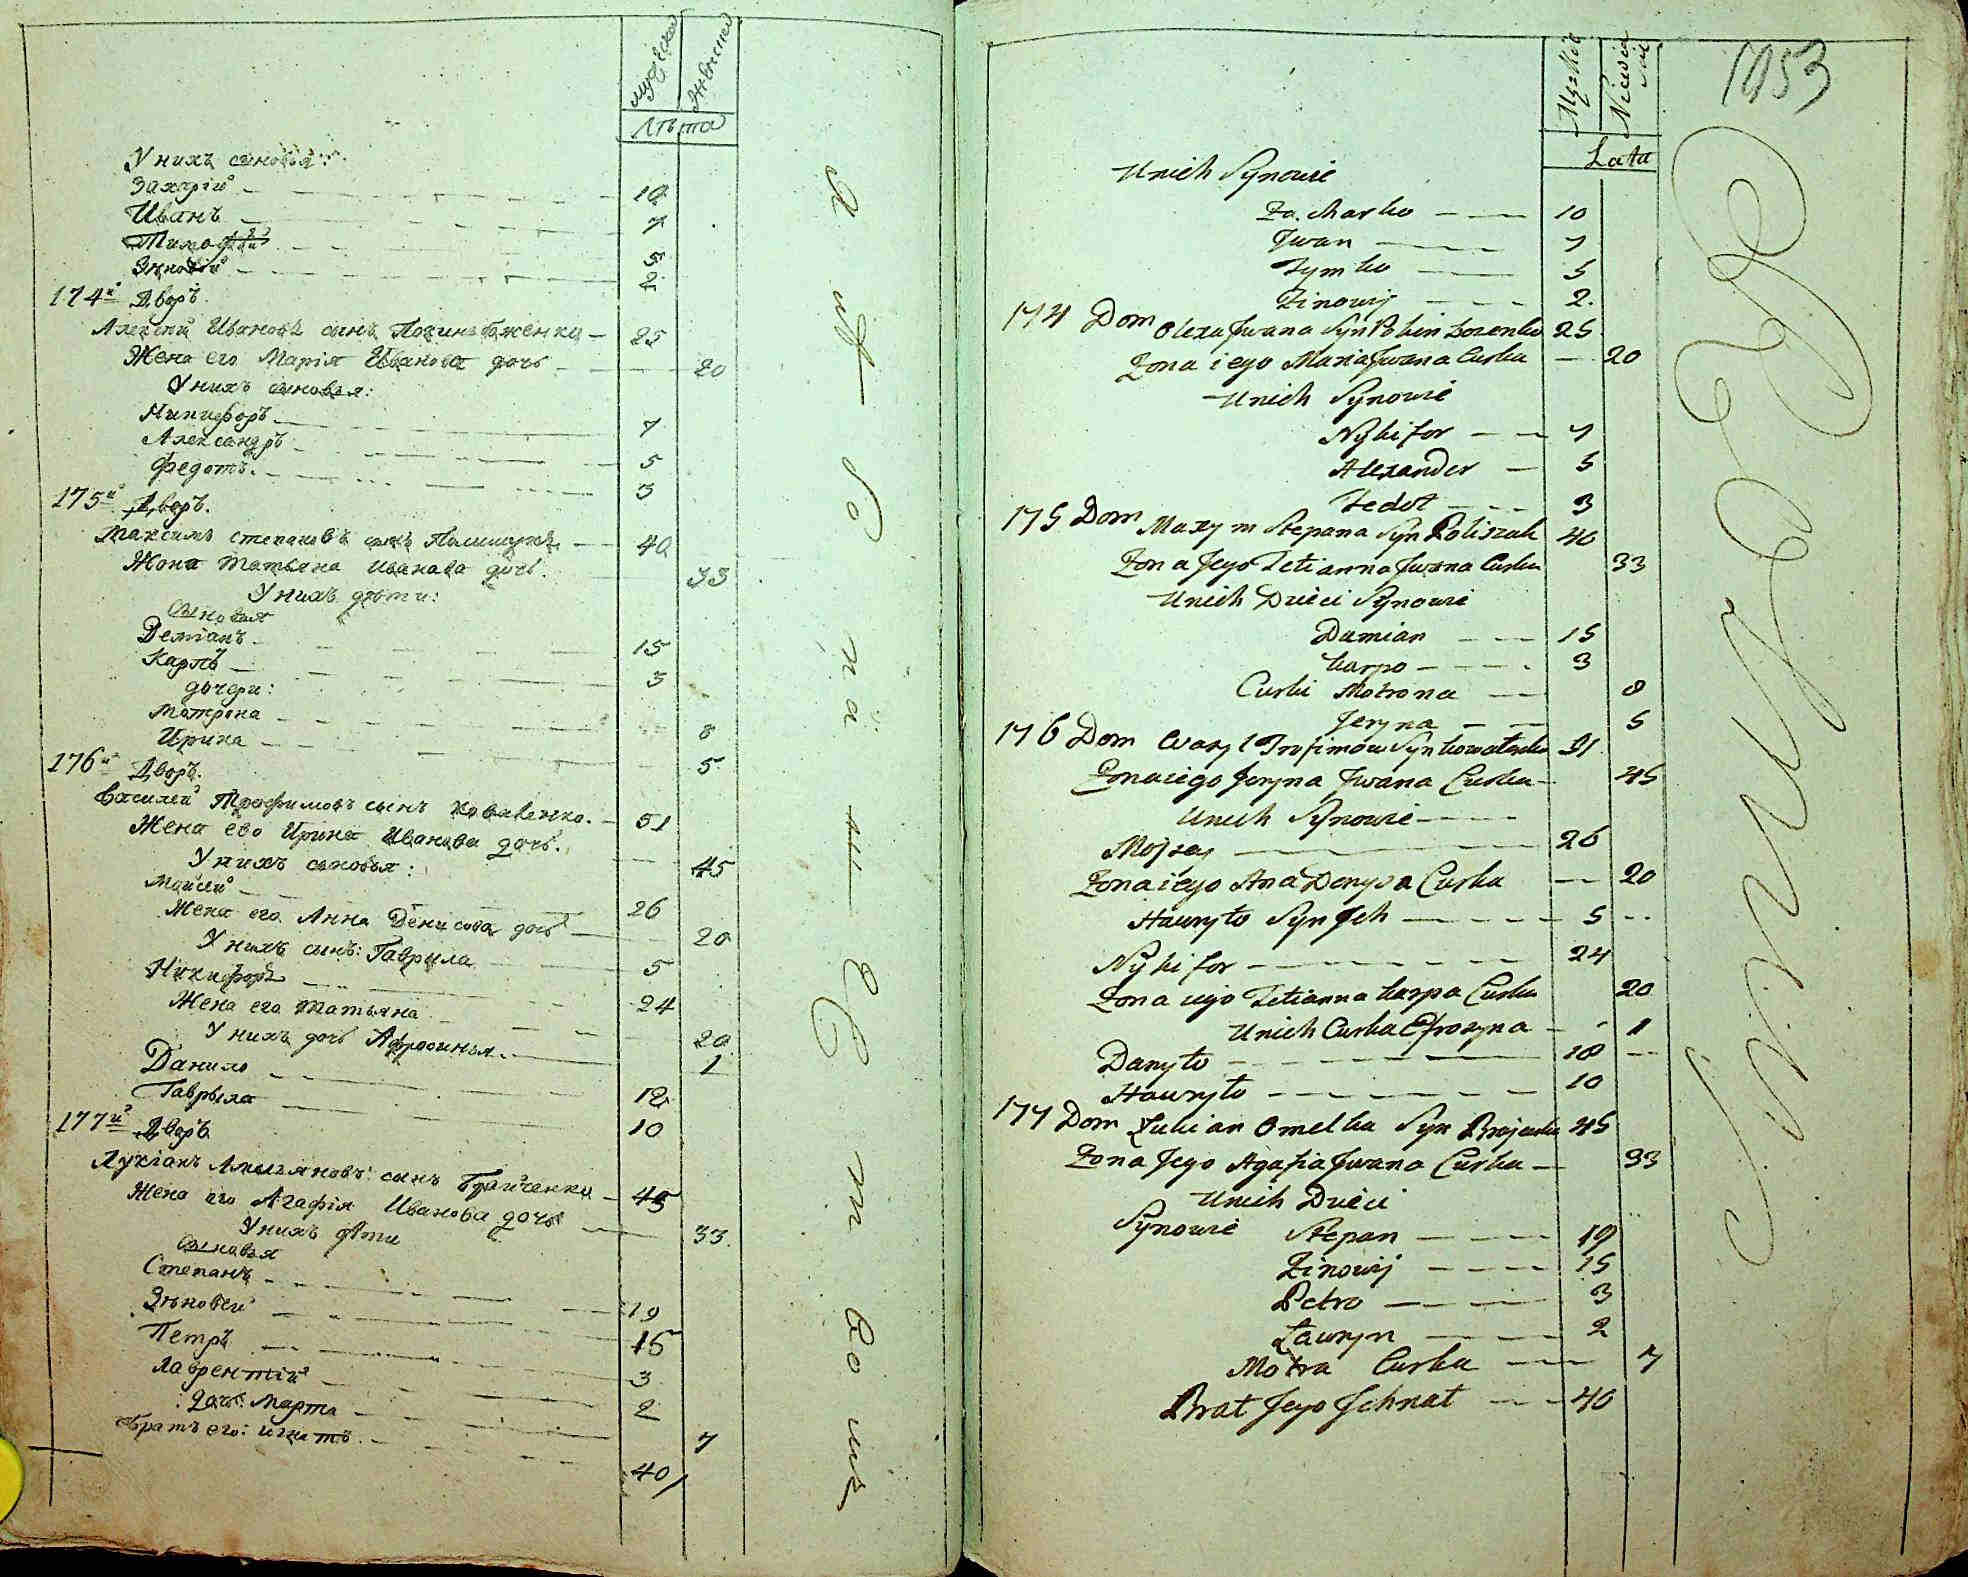 мужеска
женска
Лѣта
У нихъ сыновья:
Захарій 10
Иванъ 7
Тимофѣй 5
Зѣновій 2
174й Дворъ.
Алексѣй Ивановъ сынъ 25
Жена его Марія Иванова дочь 20
У нихъ сыновья:
Никифоръ 7
Александръ 5
Федотъ. 3
175й Дворъ.
Максимъ Степановъ сынъ Полищукъ 40
Жена Татьяна Иванова дочь. 33
У нихъ дѣти:
Сыновья
Деміанъ 15
Карпъ 3
дочери:
Матрона 8
Ирина 5
176й Дворъ.
Василей Трофимовъ сынъ Коваленко. 51
Жена его Ирина Иванова дочь. 45
У нихъ сыновья:
Мойсей 26
Жена его Анна Денисова дочь 20
У нихъ сынъ: Гаврила 5
Никифоръ 24
Жена его Татьяна 20
У нихъ дочь Афросинья. 1
Данило 18
Гаврыла 10
177й Дворъ.
Лукіанъ Амельяновъ сынъ Брайченко 45
Жена его Агафія Иванова дочь 33
У нихъ дѣти
Сыновья
Степанъ 19
Зѣновей 15
Петръ 3
Лаврентій 2
дочь: Марта 7
Братъ его: Игнатъ. 40
1853
Męzkie
Niewiescie
Lata
Unich Synowie
Zacharko 10
Jwan 7
Tymko 5
Zinowij 2.
174 Dom Olexa Jwana Syn 25
Zona iego Maria Jwana Curka 20
Unich Synowie
Nykifor 7
Alexander 5
Fedot 3
175 Dom Maxym Stepana Syn Poliszuk 40
Zona Jego Tetianna Jwana Curka 33
Unich Dzieci Synowie
Damian 15
Karpo 3
Curki Motrona 8
Jeryna 5
176 Dom Wasyl Trofimow Syn Kowalenko 51
Zona iego Jeryna Jwana Curka 45
Unich Synowie
Mojzey 26
Zona iego Ana Denysa Curka 20
Hawryło Syn Jch 5
Nykifor 24
Zona iego Tetianna Karpa Curka 20
Unich Curka Efrozyna 1
Danyło 18
Hawryło 10
177 Dom Łukian Omelka Syn 45
Zona Jego Agafia Jwana Curka 33
Unich Dzieci
Synowie Stepan 19
Zinowij 15
Petro 3
Ławryn 2
Motra Curka 7
Brat Jego Jchnat 40